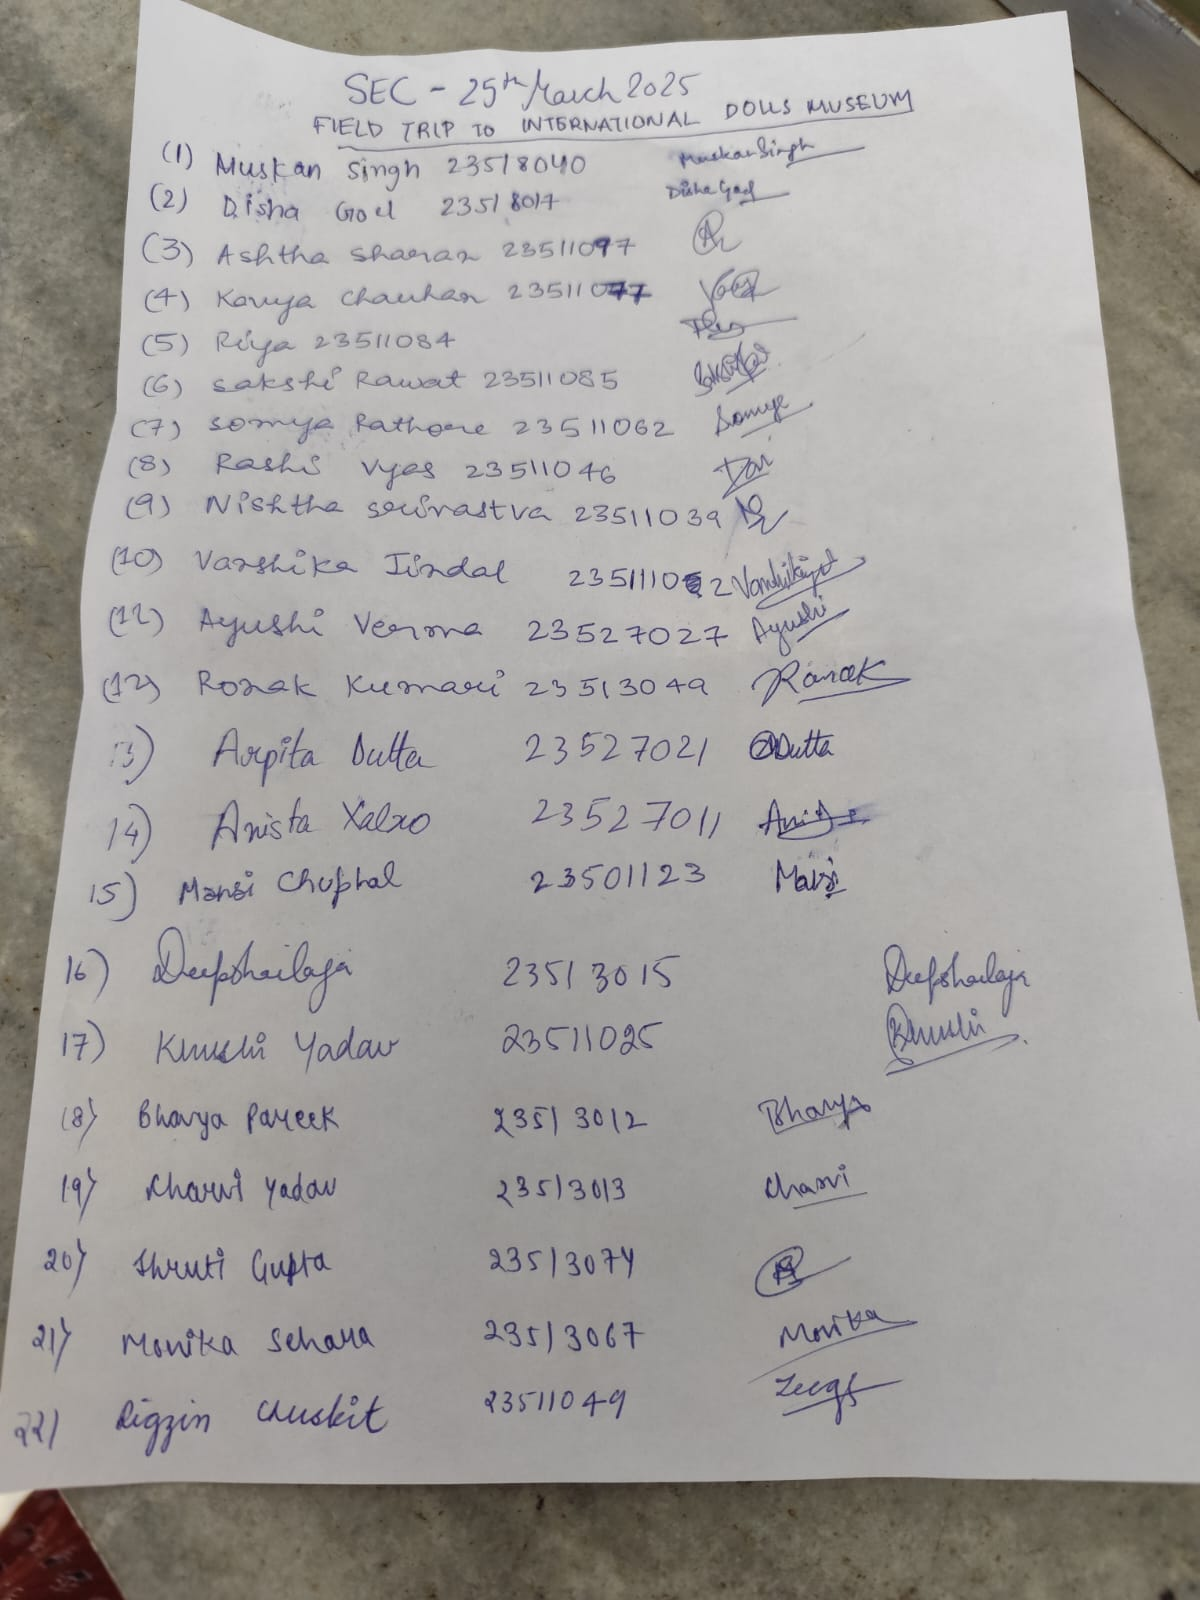 SEC - 25th March 2025
FIELD TRIP TO INTERNATIONAL DOLLS MUSEUM
(1) Muskan Singh 23518040 Muskan Singh
(2) Disha Goel 23518017 Disha Goel
(3) Ashtha Sharan 23511097
(4) Kavya Chauhan 23511077
(5) Riya 23511084
(6) Sakshi Rawat 23511085
(7) Somya Rathore 23511062 Somya
(8) Rashi Vyas 23511046
(9) Nishtha Srivastva 23511039
(10) Varshika Jindal
(11) Ayushi Verma 23527027 Ayushi
(12) Ronak Kumari 23513049 Ronak
13) Arpita Dutta 23527021 Dutta
14) Anista Xalxo 23527011
15) Mansi Chuphal 23501123 Mansi
16) Deepshailaja 23513015 Deepshailaja
17) Khushi Yadav 23511025 Khushi
18) Bhavya Pareek 23513012 Bhavya
19) Charvi Yadav 23513013 Charvi
20) Shruti Gupta 23513074
21) Monika Sehara 23513067 Monika
22) Rigzin Chuskit 23511049